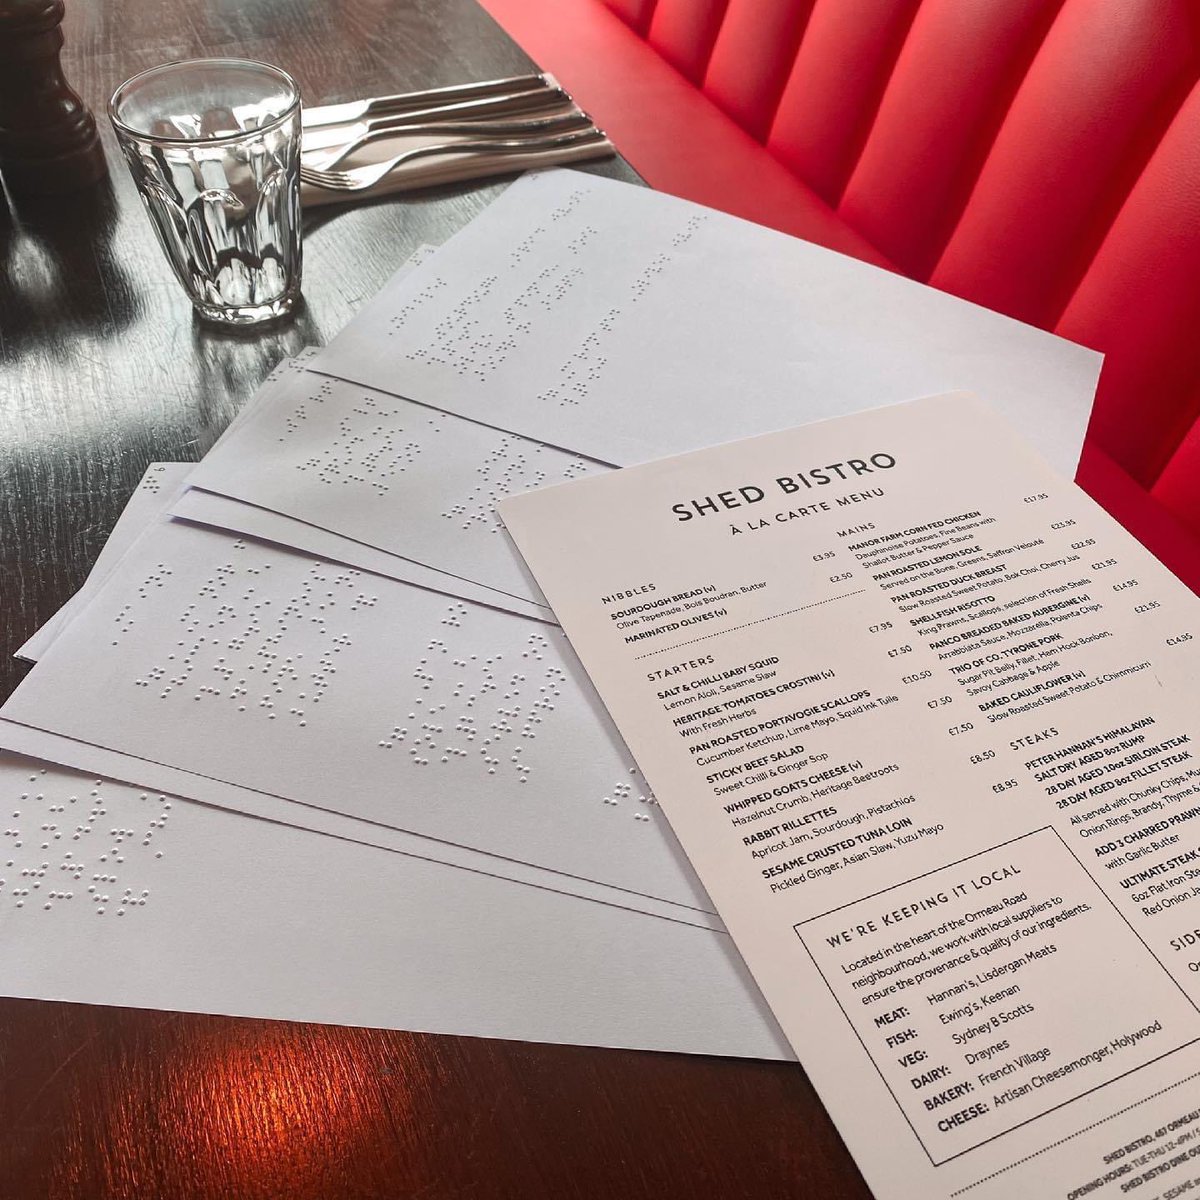 SHED BISTRO
À LA CARTE MENU
NIBBLES
SOURDOUGH BREAD (v) £3.95
Olive Tapenade, Bois Boudran, Butter
MARINATED OLIVES (v) £2.50
STARTERS
SALT & CHILLI BABY SQUID £7.95
Lemon Aioli, Sesame Slaw
HERITAGE TOMATOES CROSTINI (v) £7.50
With Fresh Herbs
PAN ROASTED PORTAVOGIE SCALLOPS £10.50
Cucumber Ketchup, Lime Mayo, Squid Ink Tuile
STICKY BEEF SALAD £7.50
Sweet Chilli & Ginger Sop
WHIPPED GOATS CHEESE (v) £7.50
Hazelnut Crumb, Heritage Beetroots
RABBIT RILLETTES £8.50
Apricot Jam, Sourdough, Pistachios
SESAME CRUSTED TUNA LOIN £8.95
Pickled Ginger, Asian Slaw, Yuzu Mayo
MAINS
MANOR FARM CORN FED CHICKEN £17.95
Dauphinoise Potatoes, Fine Beans with
Shallot Butter & Pepper Sauce
PAN ROASTED LEMON SOLE £23.95
Served on the Bone, Greens, Saffron Velouté
PAN ROASTED DUCK BREAST £22.95
Slow Roasted Sweet Potato, Bok Choi, Cherry Jus
SHELLFISH RISOTTO £21.95
King Prawns, Scallops, selection of Fresh Shells
PANCO BREADED BAKED AUBERGINE (v) £14.95
Arrabbiata Sauce, Mozzarella, Polenta Chips
TRIO OF CO. TYRONE PORK £21.95
Sugar Pit Belly, Fillet, Ham Hock Bonbon,
Savoy Cabbage & Apple
BAKED CAULIFLOWER (v) £14.95
Slow Roasted Sweet Potato & Chimmicurri
STEAKS
PETER HANNAN'S HIMALAYAN
SALT DRY AGED 8oz RUMP
28 DAY AGED 10oz SIRLOIN STEAK
28 DAY AGED 8oz FILLET STEAK
All served with Chunky Chips,
Onion Rings, Brandy, Thyme &
ADD 3 CHARRED PRAWN
with Garlic Butter
ULTIMATE STEAK
6oz Flat Iron
Red Onion
WE'RE KEEPING IT LOCAL
Located in the heart of the Ormeau Road
neighbourhood, we work with local suppliers to
ensure the provenance & quality of our ingredients.
MEAT: Hannan's, Lisdergan Meats
FISH: Ewing's, Keenan
VEG: Sydney B Scotts
DAIRY: Draynes
BAKERY: French Village
CHEESE: Artisan Cheesemonger, Holywood
SHED BISTRO, 467 ORMEAU
OPENING HOURS: TUE-THU 12-4PM /
SHED BISTRO DINE